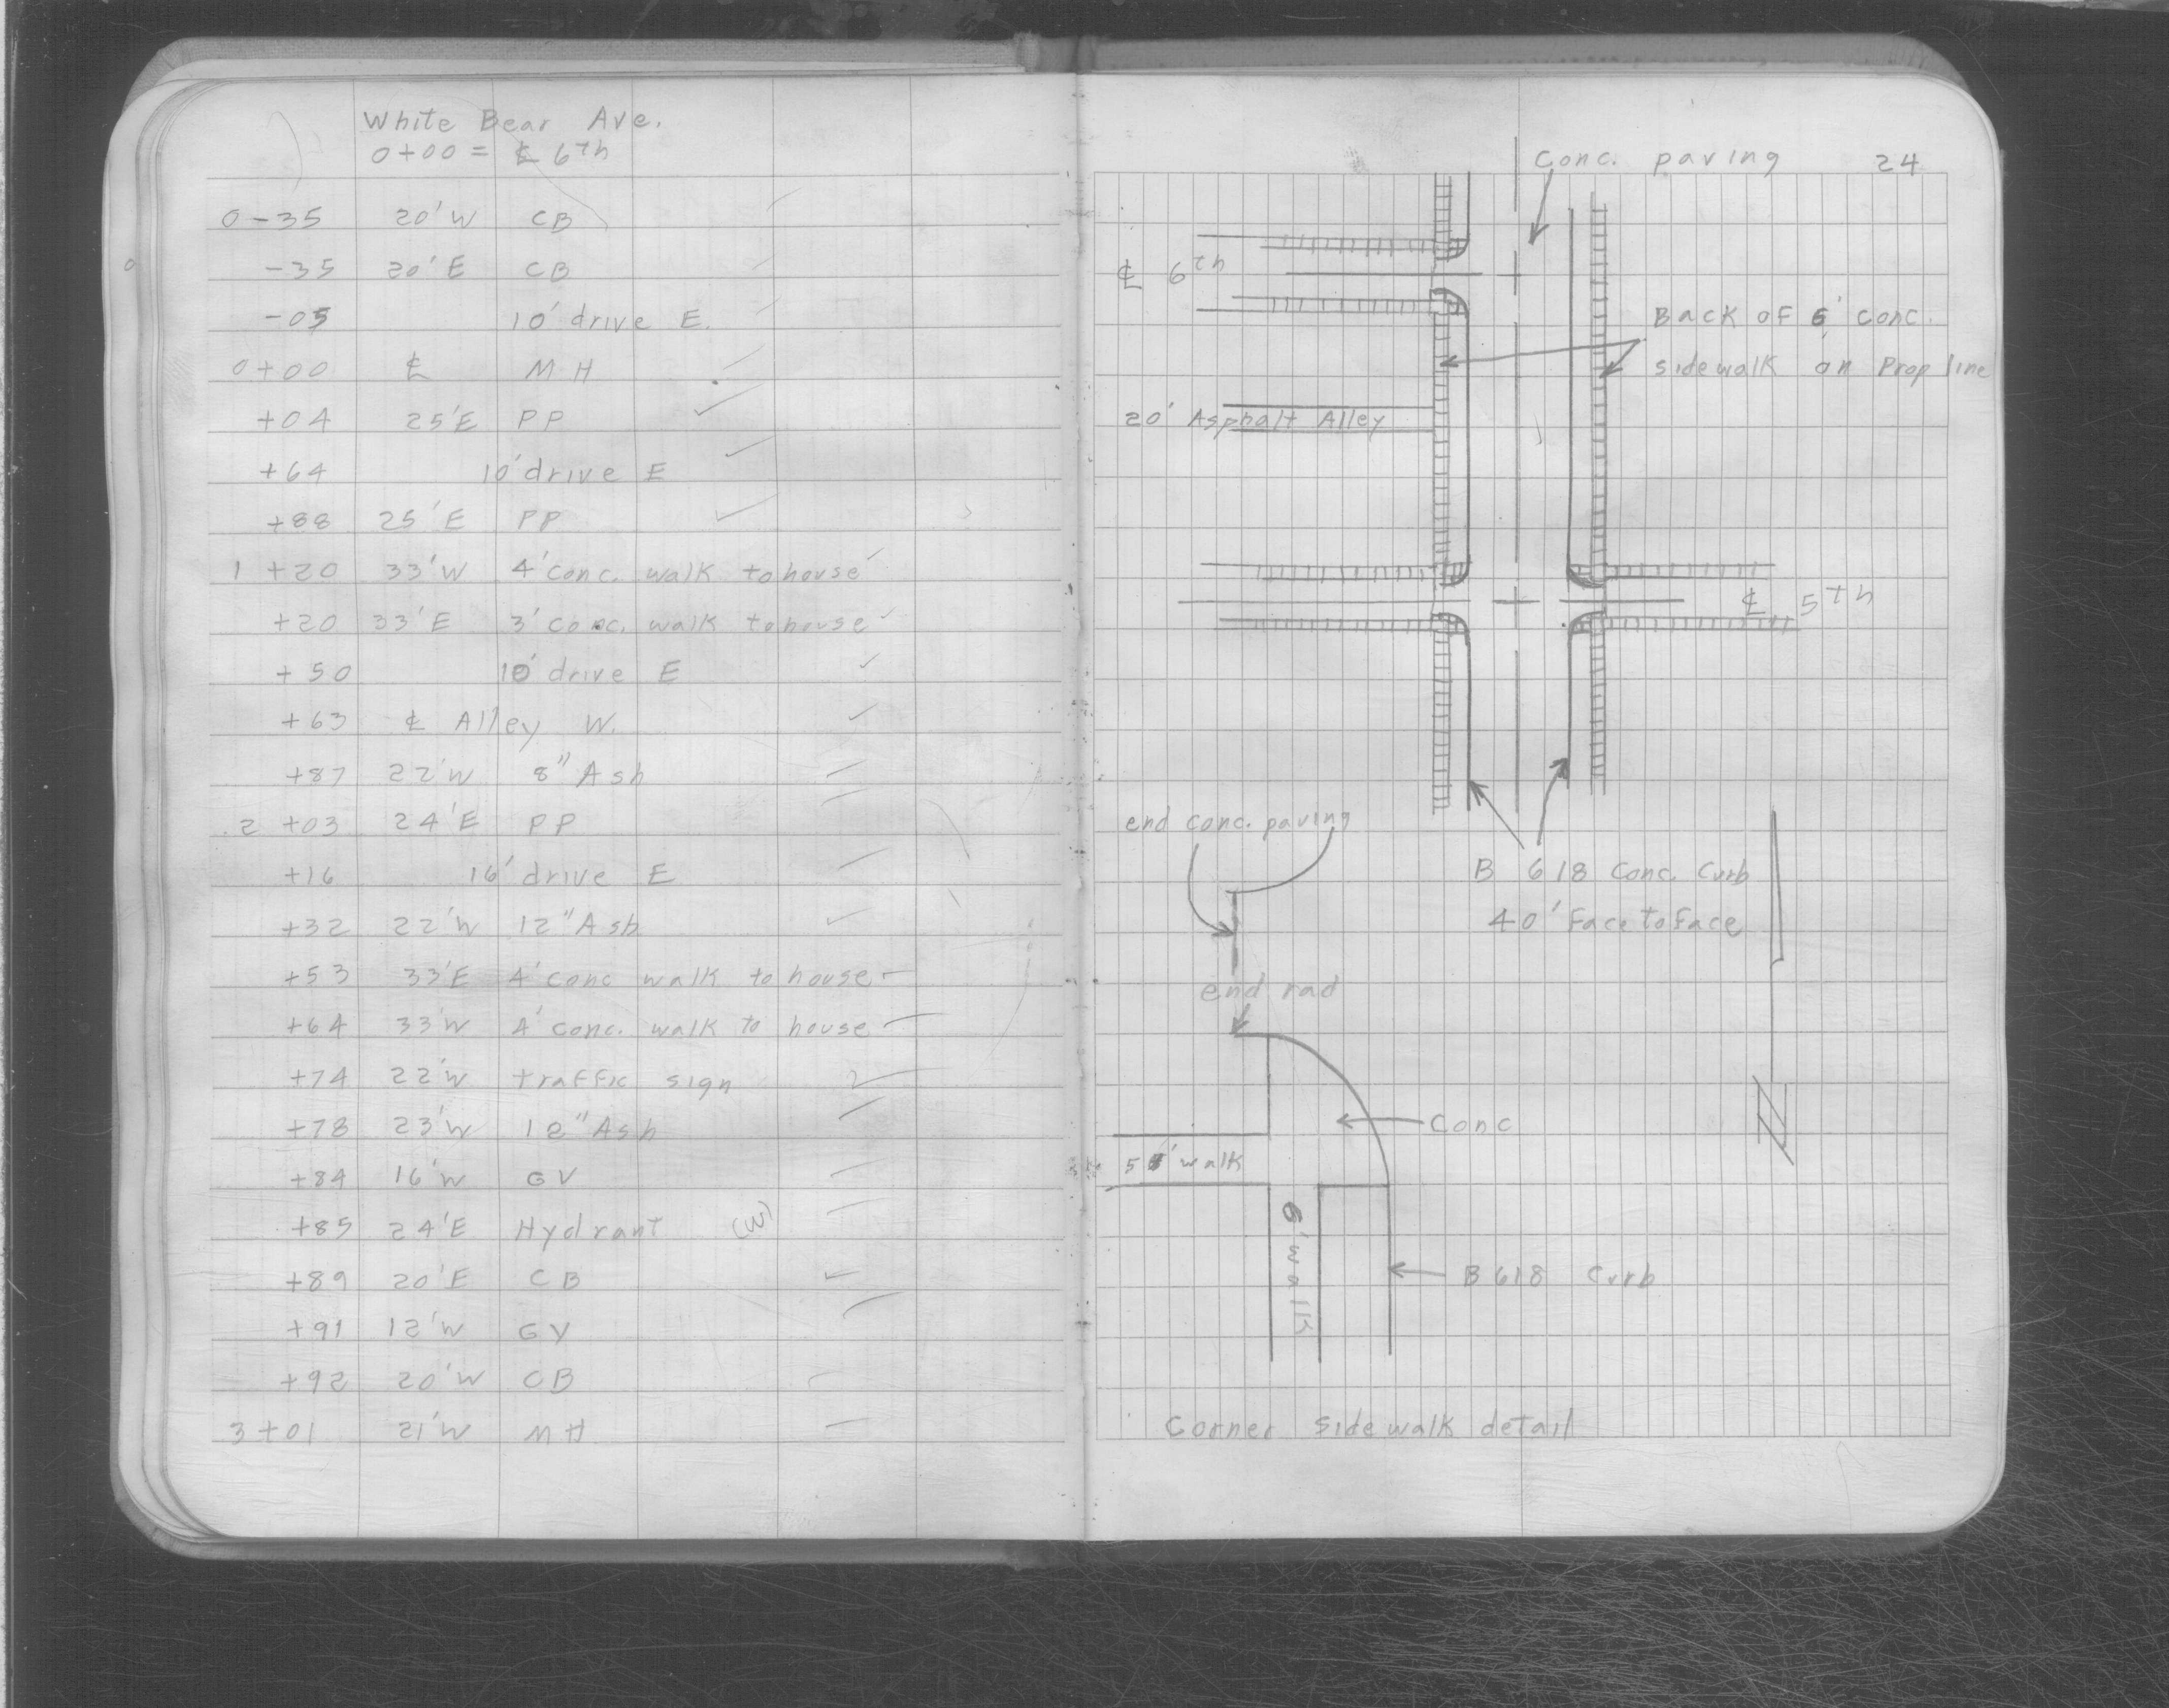 White Bear Ave.
0+00 = ℄ 6th
0-35 20'W CB
-35 20'E CB
-05 10' drive E.
0+00 ℄ MH
+04 25'E PP
+64 10' drive E
+88 25'E PP
1+20 33'W 4' conc. walk to house
+20 33'E 3' conc. walk to house
+50 10' drive E
+63 ℄ Alley W.
+87 22'W 8" Ash
2+03 24'E PP
+16 16' drive E
+32 22'W 12" Ash
+53 33'E 4' conc walk to house
+64 33'W 4' conc. walk to house
+74 22'W traffic sign
+78 23'W 12" Ash
+84 16'W GV
+85 24'E Hydrant (W)
+89 20'E CB
+91 12'W GV
+92 20'W CB
3+01 21'W MH
Conc. paving 24
℄ 6th
Back of 6' conc.
sidewalk on Prop line
20' Asphalt Alley
℄ 5th
end conc. paving
B 618 Conc. Curb
40' Face to Face
end rad
Conc
5' walk
6' walk
B 618 Curb
Corner Sidewalk detail